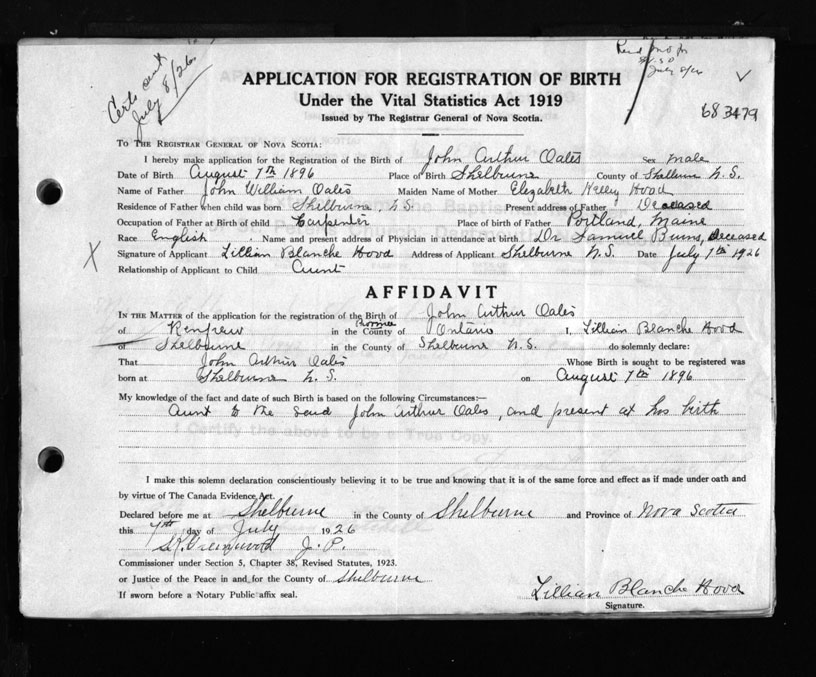 Certs sent
July 8/26
July 8/26
APPLICATION FOR REGISTRATION OF BIRTH
Under the Vital Statistics Act 1919
Issued by The Registrar General of Nova Scotia.
683479
TO THE REGISTRAR GENERAL OF NOVA SCOTIA:
I hereby make application for the Registration of the Birth of John Arthur Oates Sex male
Date of Birth August 7th 1896 Place of Birth Shelburne County of Shelburne N.S.
Name of Father John William Oates Maiden Name of Mother Elizabeth Kelley Hood
Residence of Father when child was born Shelburne, N.S Present address of Father Deceased
Occupation of Father at Birth of child Carpenter Place of birth of Father Portland, Maine
Race English Name and present address of Physician in attendance at birth Dr Samuel Burns, deceased
X Signature of Applicant Lillian Blanche Hood Address of Applicant Shelburne N.S. Date July 7th 1926
Relationship of Applicant to Child Aunt
AFFIDAVIT
IN THE MATTER of the application for the registration of the Birth of John Arthur Oates
of Renfrew in the County of Ontario I, Lillian Blanche Hood
of Shelburne in the County of Shelburne N.S. do solemnly declare:
That John Arthur Oates Whose Birth is sought to be registered was
born at Shelburne N.S. on August 7th 1896
My knowledge of the fact and date of such Birth is based on the following Circumstances:—
Aunt to the said John Arthur Oates, and present at his birth
I Certify the above to be a True Copy.
I make this solemn declaration conscientiously believing it to be true and knowing that it is of the same force and effect as if made under oath and
by virtue of The Canada Evidence Act.
Declared before me at Shelburne in the County of Shelburne and Province of Nova Scotia
this 7th day of July 1926
J. P.
Commissioner under Section 5, Chapter 38, Revised Statutes, 1923.
or Justice of the Peace in and for the County of Shelburne
If sworn before a Notary Public affix seal.
Lillian Blanche Hood
Signature.